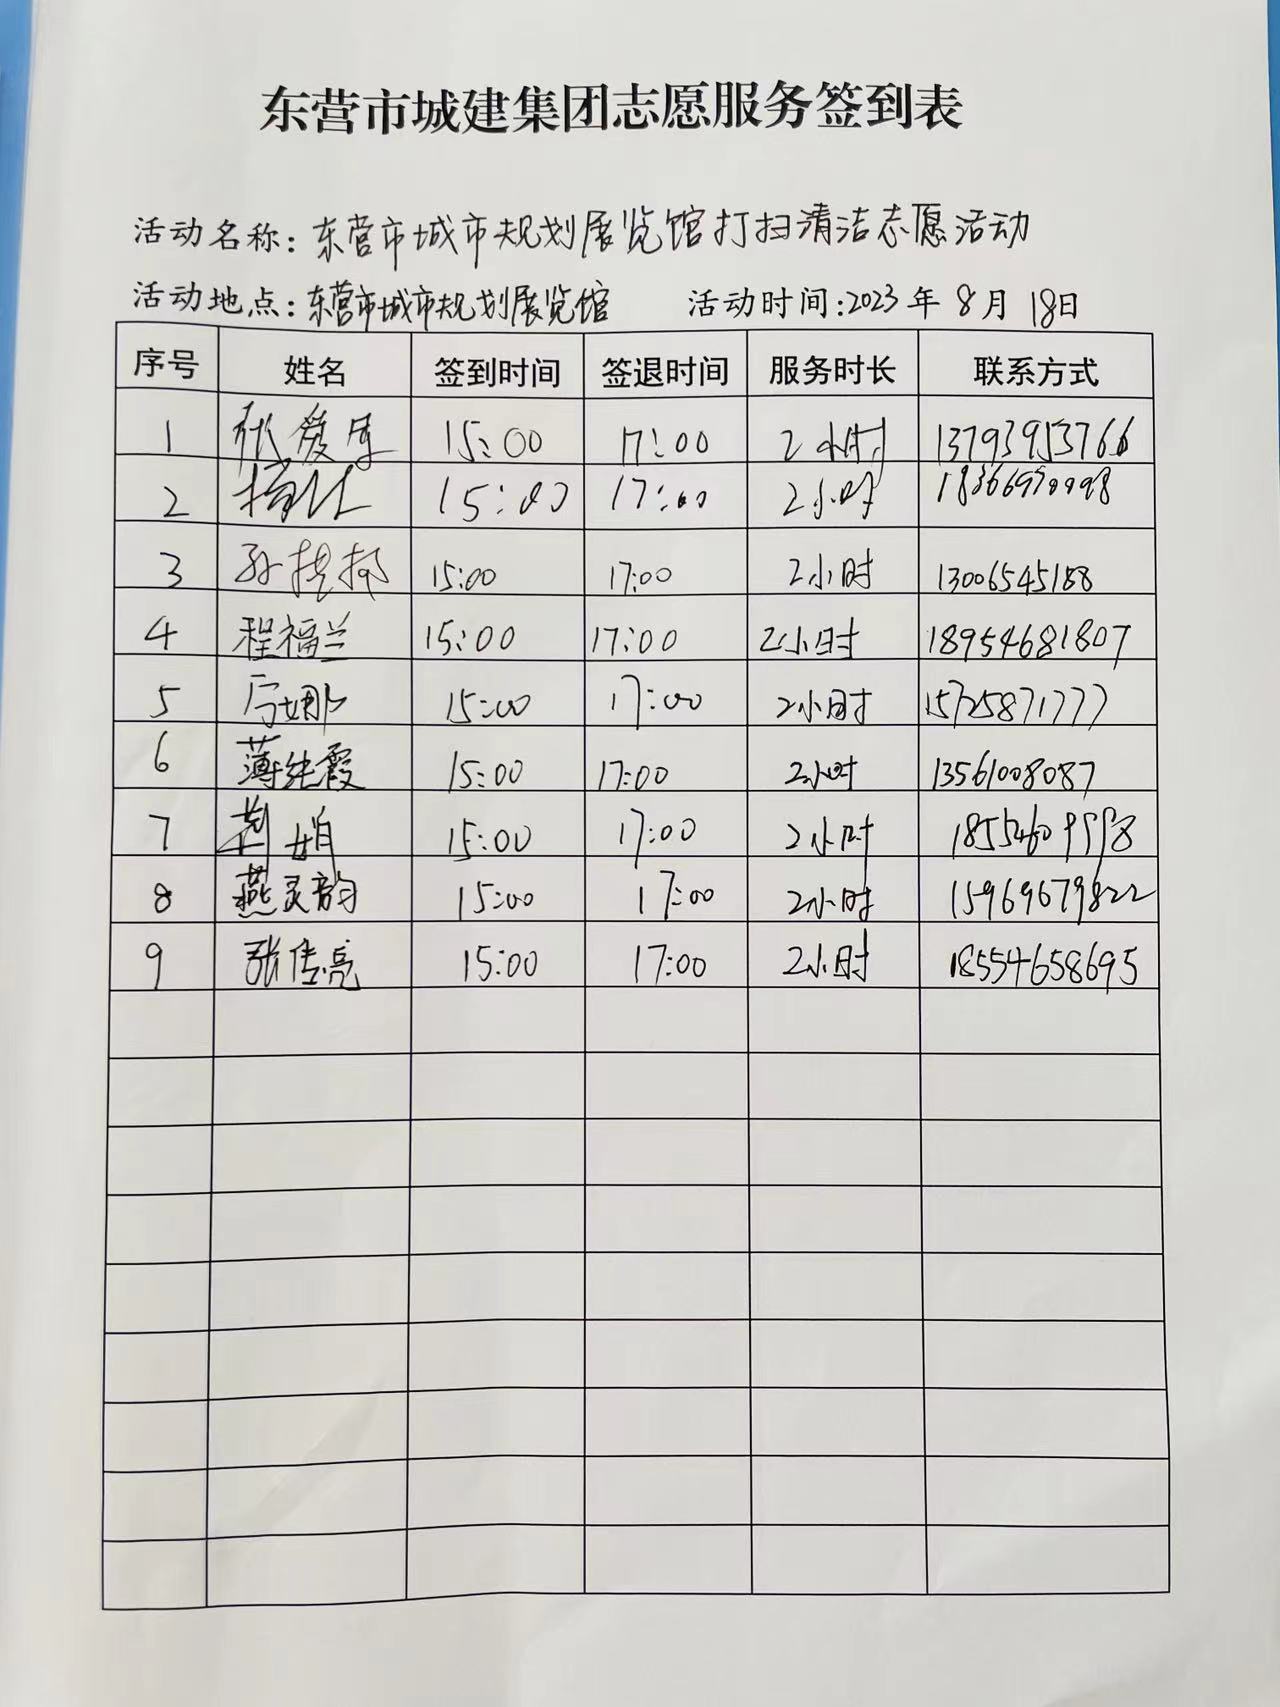 东营市城建集团志愿服务签到表
活动名称：东营市城市规划展览馆打扫清洁志愿活动
活动地点：东营市城市规划展览馆 活动时间：2023年8月18日
序号 姓名 签到时间 签退时间 服务时长 联系方式
1 张爱 15:00 17:00 2小时 13793953766
2 15:00 17:00 2小时
3 孙 15:00 17:00 2小时 13006545188
4 程福兰 15:00 17:00 2小时 18954681807
5 厉娜 15:00 17:00 2小时 15725871777
6 薄纯霞 15:00 17:00 2小时 13561008087
7 荆娟 15:00 17:00 2小时
8 燕灵韵 15:00 17:00 2小时 15969679822
9 张传亮 15:00 17:00 2小时 18554658695